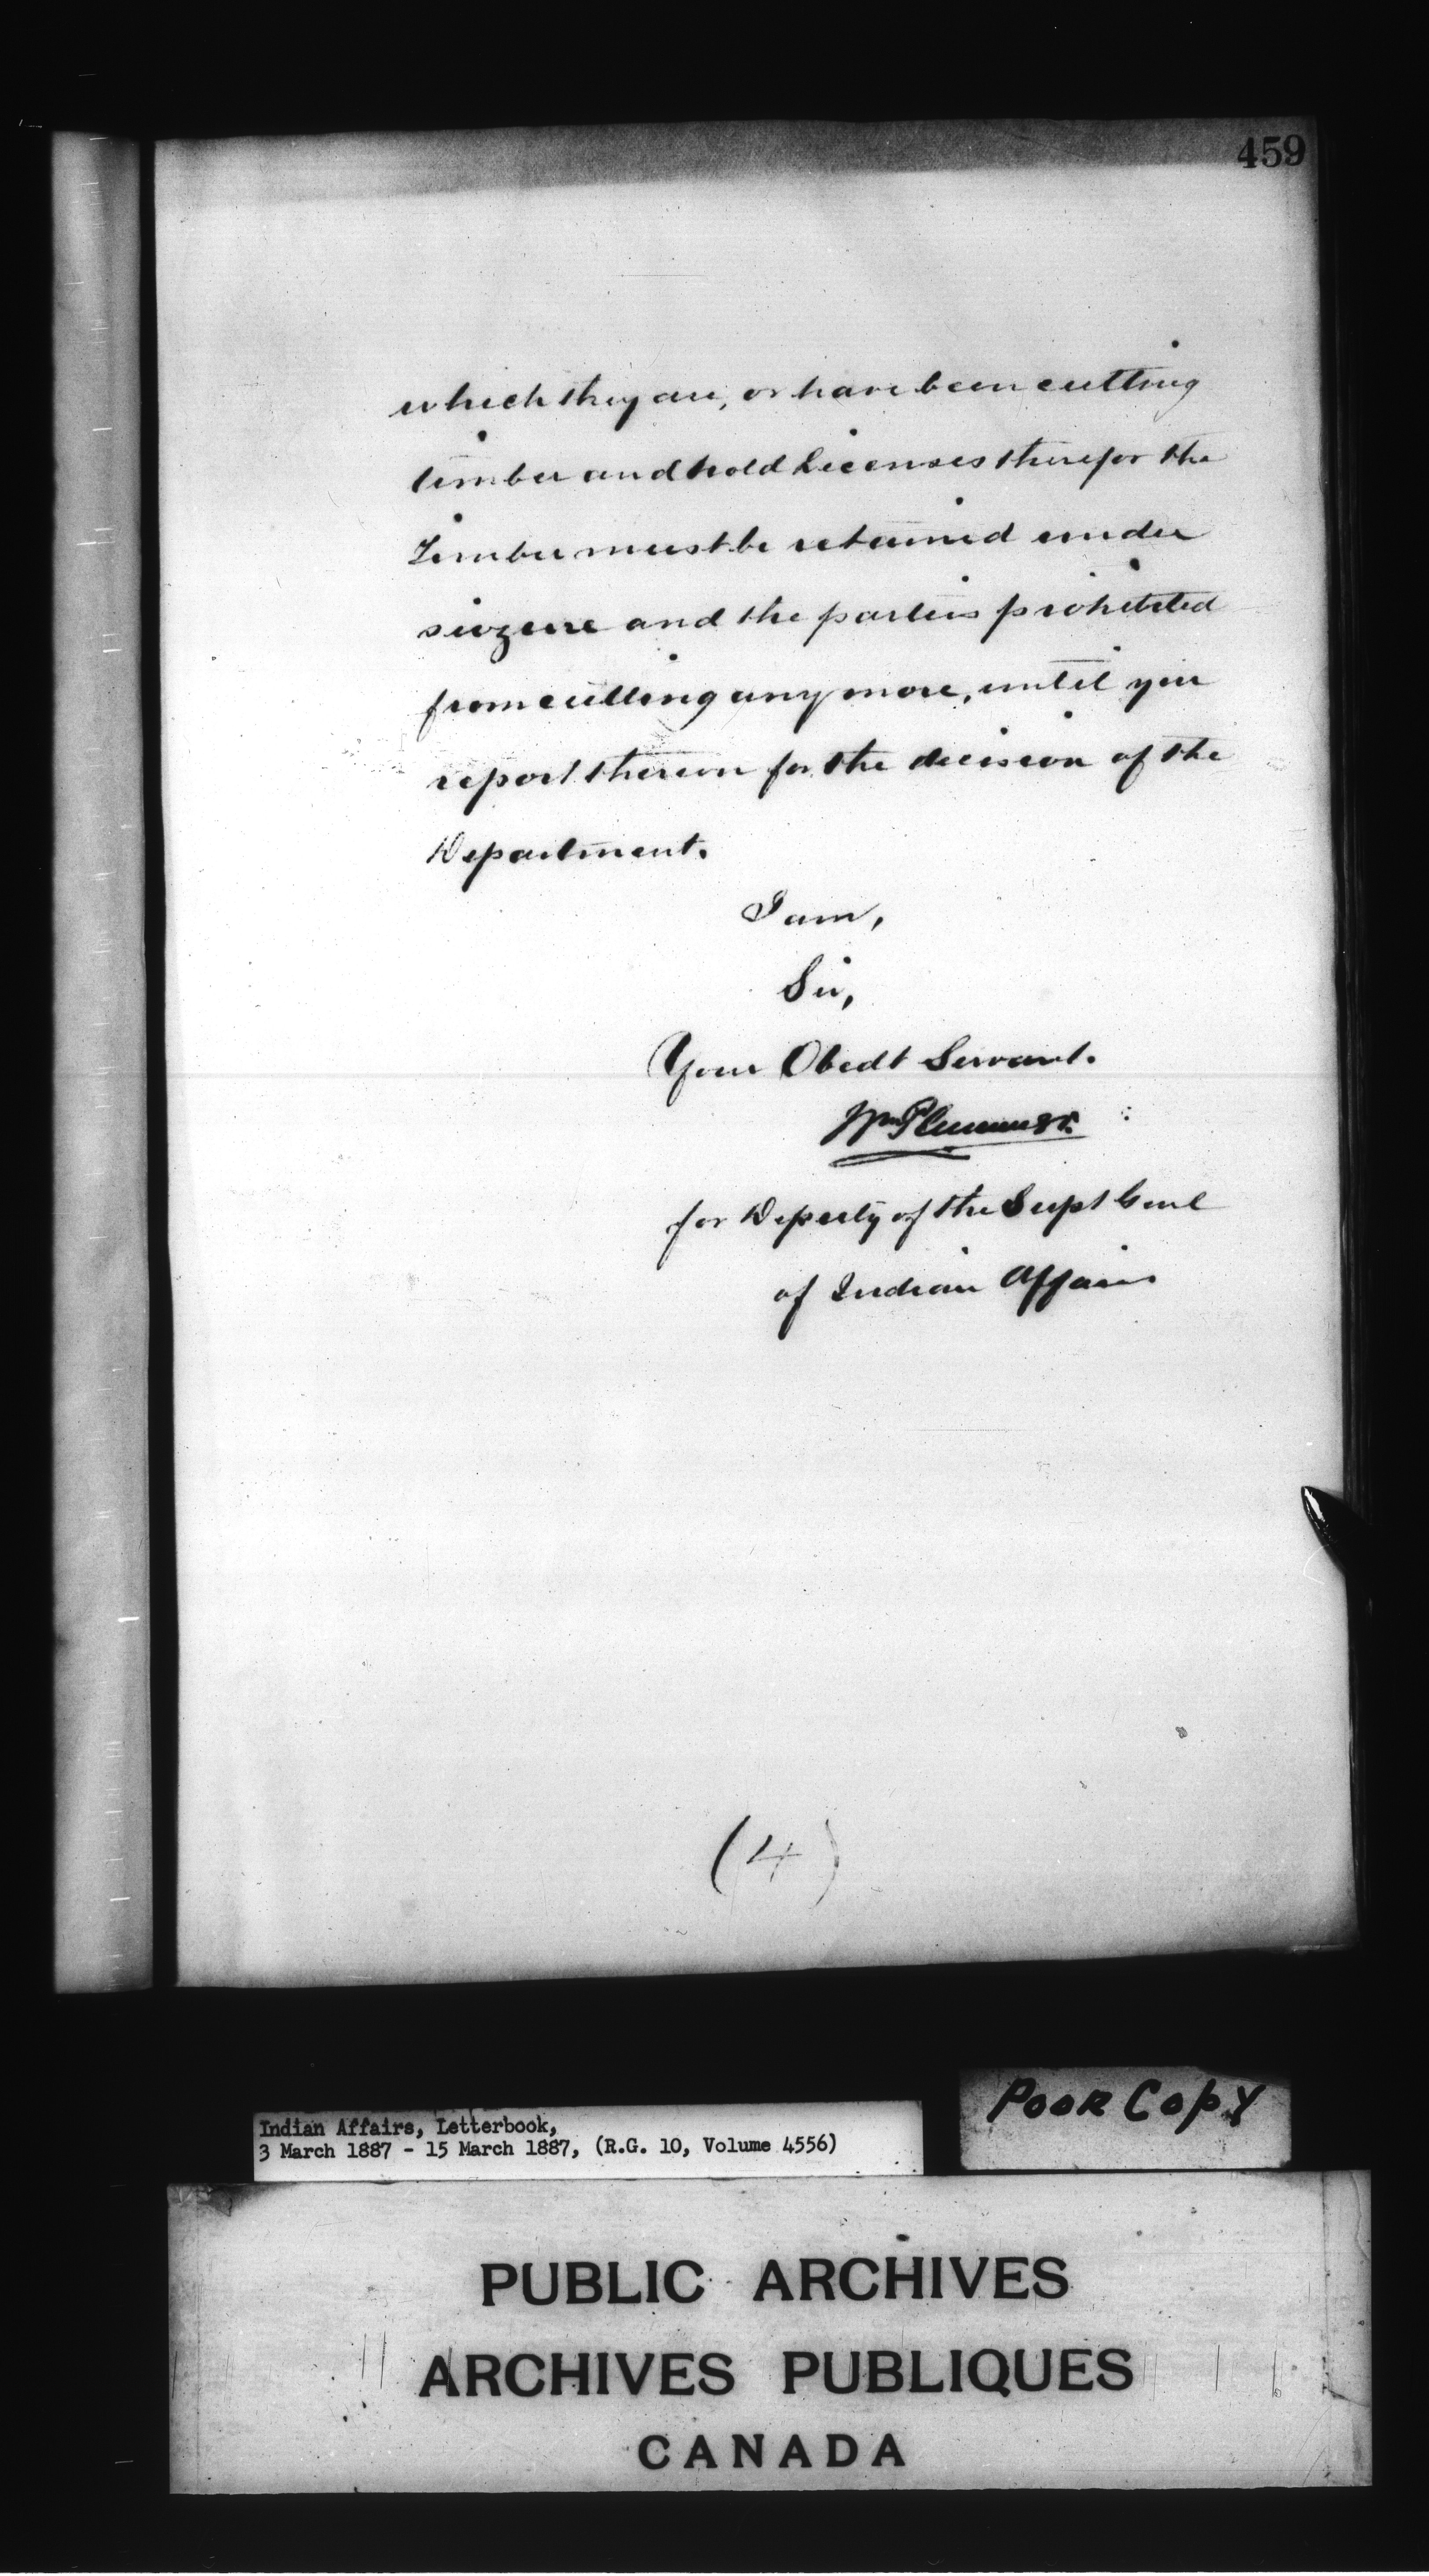 459
which they are, or have been cutting
timber and hold Licenses therefor the
Timber must be retained under
siezure and the parties prohibited
from cutting any more, until you
report thereon for the decision of the
Department.
I am,
Sir,
Your Obedt Servant.
Wm Plummer
for Deputy of the Supt Genl
of Indian Affairs
(4)
POOR COPY
Indian Affairs, Letterbook,
3 March 1887 - 15 March 1887, (R.G. 10, Volume 4556)
PUBLIC ARCHIVES
ARCHIVES PUBLIQUES
CANADA